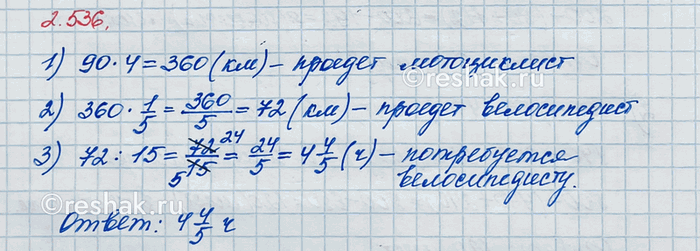 2.536.
1) 90·4=360(км)-проедет мотоциклист
2) 360·1/5=360/5=72(км)-проедет велосипедист
3) 72:15=72 24/5 15=24/5=4 4/5(ч)-потребуется
велосипедисту.
Ответ: 4 4/5 ч
©reshak.ru
©reshak.ru
©reshak.ru